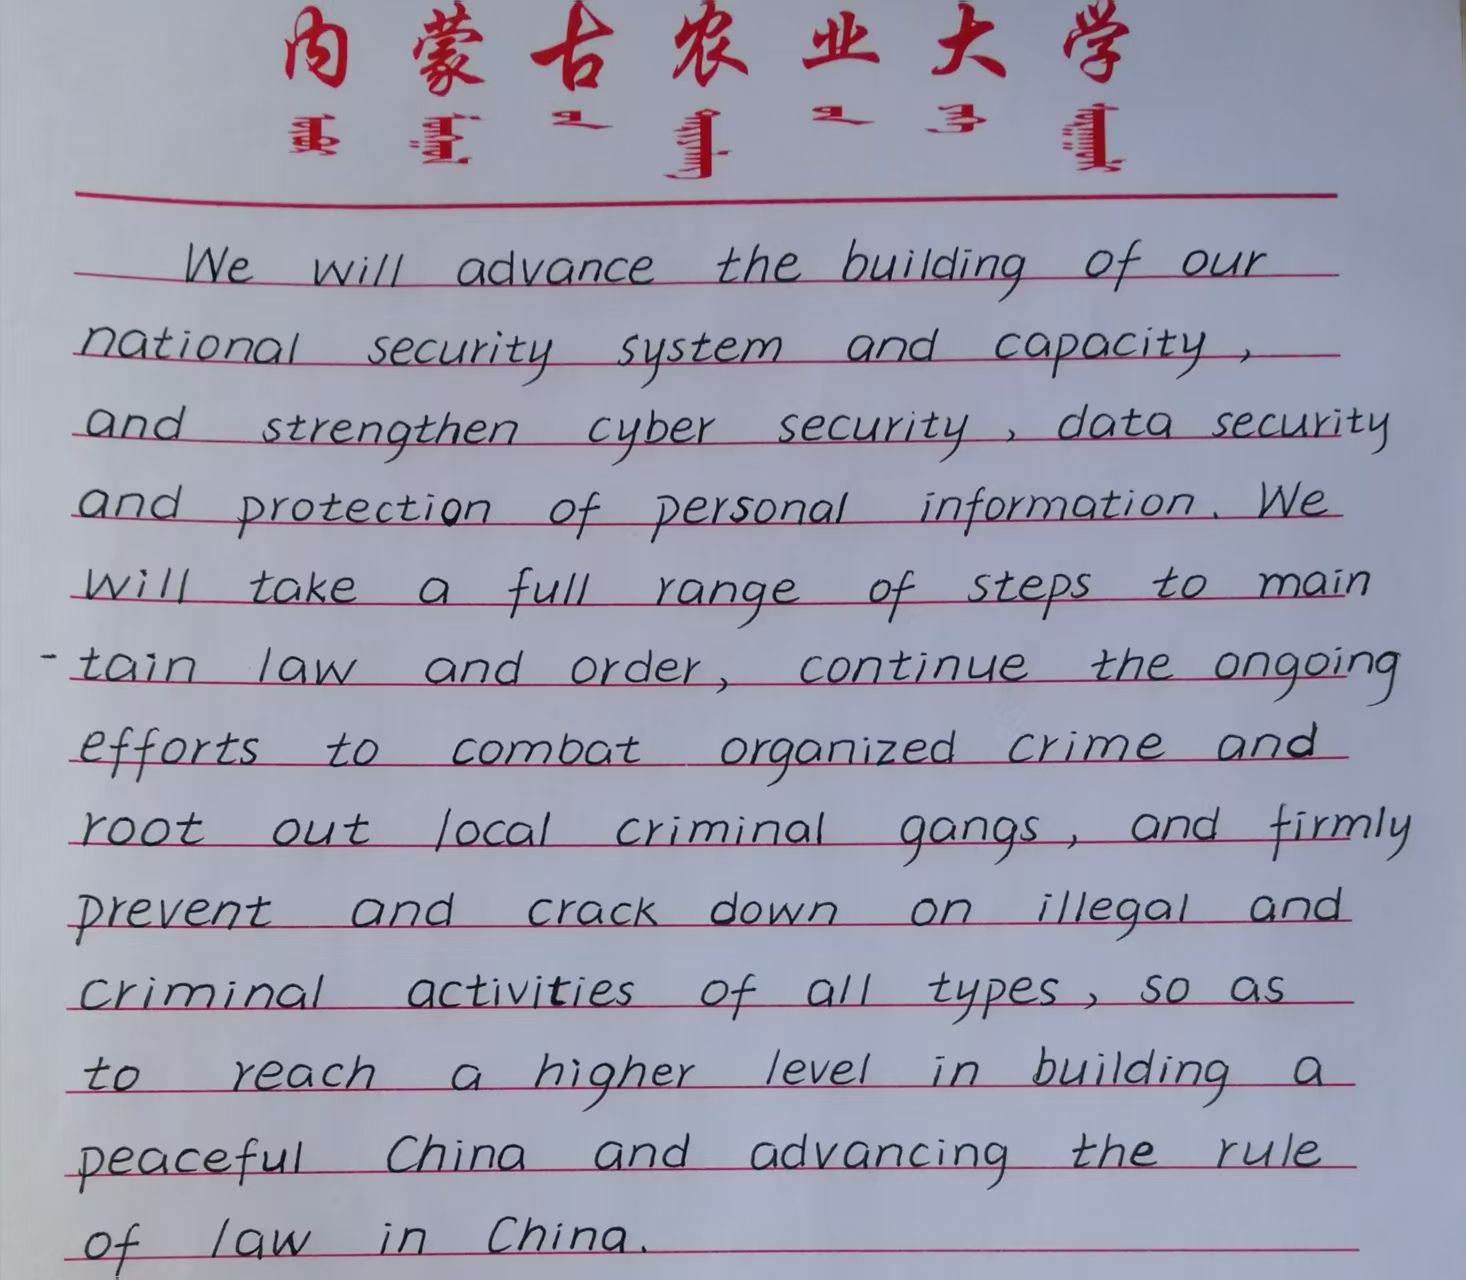 内蒙古农业大学
We will advance the building of our
national security system and capacity,
and strengthen cyber security, data security
and protection of personal information. We
will take a full range of steps to main
-tain law and order, continue the ongoing
efforts to combat organized crime and
root out local criminal gangs, and firmly
prevent and crack down on illegal and
criminal activities of all types, so as
to reach a higher level in building a
peaceful China and advancing the rule
of law in China.